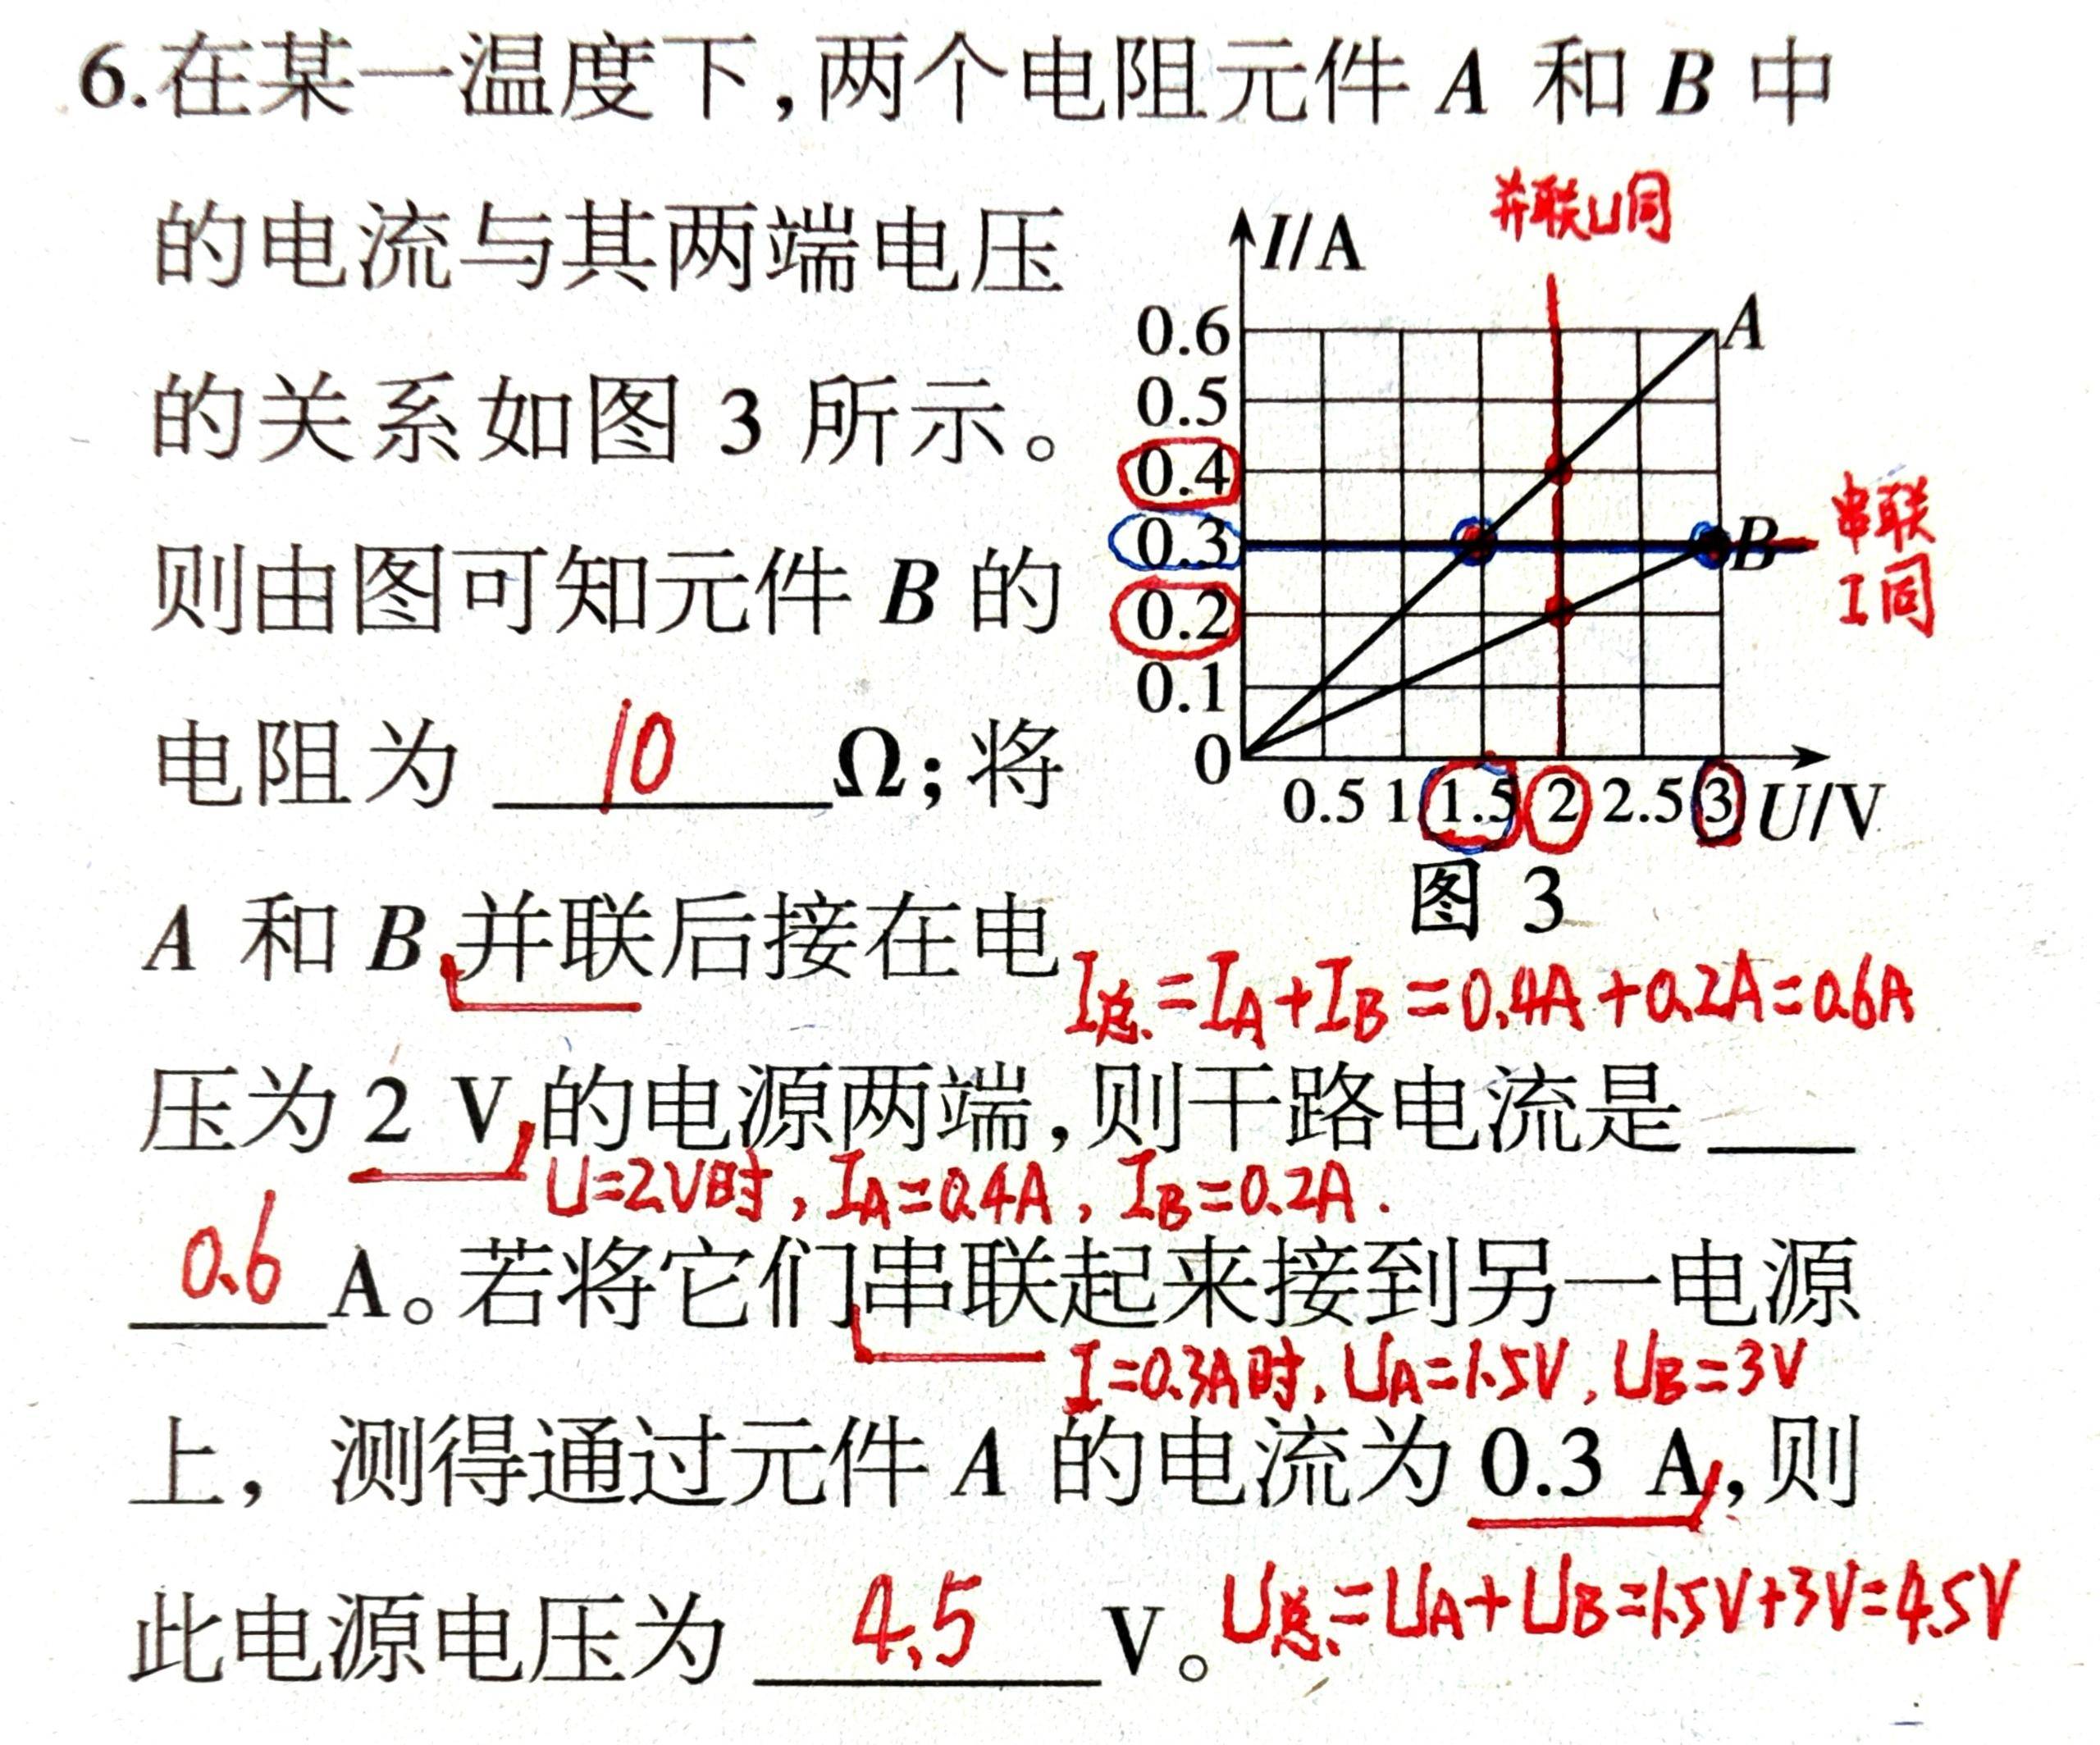 6.在某一温度下,两个电阻元件 A 和 B 中
的电流与其两端电压
的关系如图 3 所示。
则由图可知元件 B 的
电阻为 10 Ω;将
A 和 B 并联后接在电
压为 2 V 的电源两端,则干路电流是
U=2V时,IA=0.4A,IB=0.2A.
0.6 A。若将它们串联起来接到另一电源
I=0.3A时,UA=1.5V,UB=3V
上,测得通过元件 A 的电流为 0.3 A,则
此电源电压为 4.5 V。
U总=UA+UB=1.5V+3V=4.5V
并联U同
I/A
A
0.6
0.5
0.4
0.3
B
串联
I同
0.2
0.1
0
0.5 1 1.5 2 2.5 3 U/V
图 3
I总=IA+IB=0.4A+0.2A=0.6A